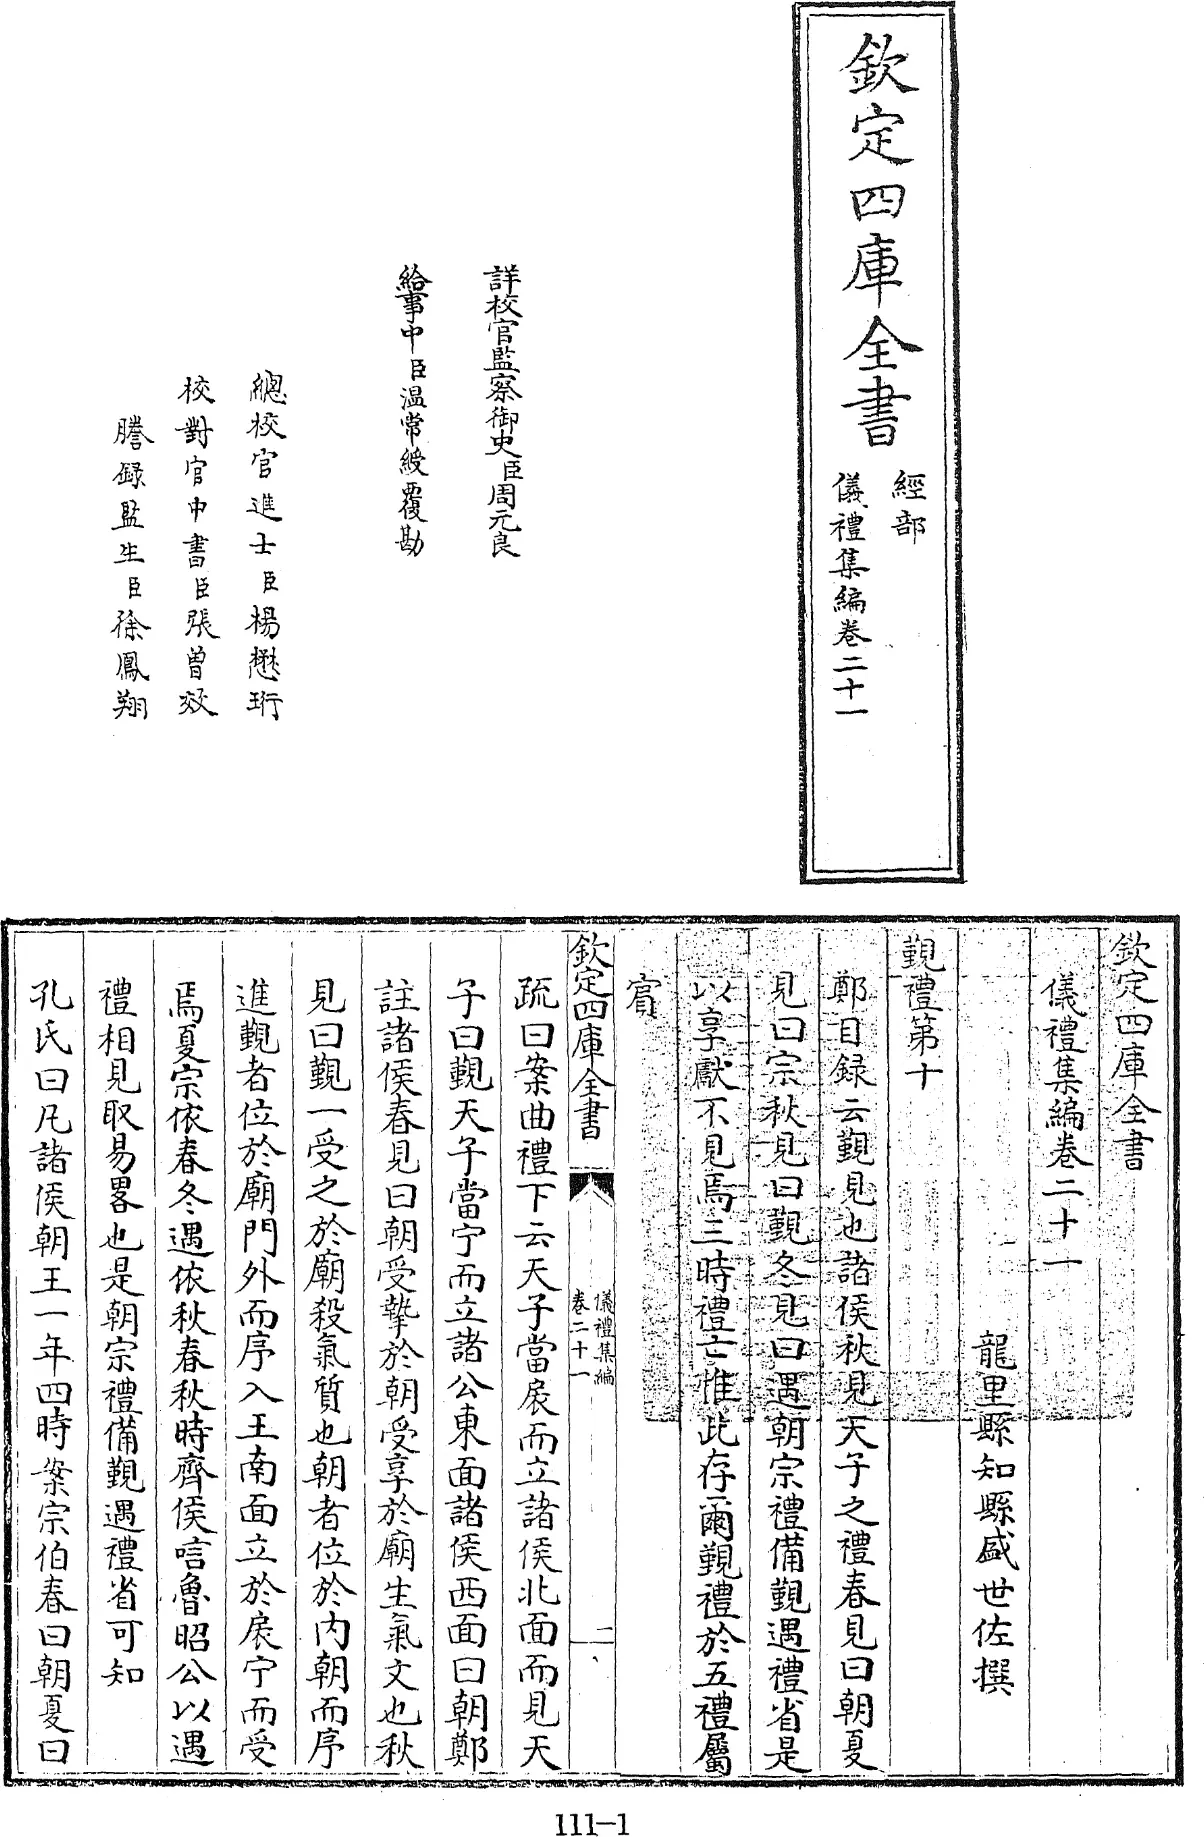 欽定四庫全書
經部
儀禮集編卷二十一
詳校官監察御史臣周元良
給事中臣温常綬覆勘
總校官進士臣楊懋珩
校對官中書臣張曾效
謄録監生臣徐鳳翔
欽定四庫全書
儀禮集編卷二十一
龍里縣知縣盛世佐撰
覲禮第十
鄭目録云覲見也諸侯秋見天子之禮春見曰朝夏
見曰宗秋見曰覲冬見曰遇朝宗禮備覲遇禮省是
以享獻不見焉三時禮亡惟此存爾覲禮於五禮屬
賓
欽定四庫全書
儀禮集編
卷二十一
一
疏曰案曲禮下云天子當扆而立諸侯北面而見天
子曰覲天子當宁而立諸公東面諸侯西面曰朝鄭
註諸侯春見曰朝受摯於朝受享於廟生氣文也秋
見曰覲一受之於廟殺氣質也朝者位於内朝而序
進覲者位於廟門外而序入王南面立於扆宁而受
焉夏宗依春冬遇依秋春秋時齊侯唁魯昭公以遇
禮相見取易畧也是朝宗禮備覲遇禮省可知
孔氏曰凡諸侯朝王一年四時案宗伯春曰朝夏曰
111-1